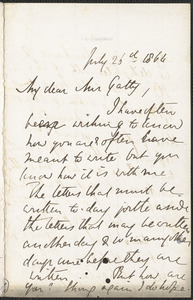 July 26th 1864
My dear Mrs Gatty,
I have often
been wishing to know
how you are & often have
meant to write but you
know how it is with me.
The letters that must be
written to-day jostle aside
the letters that may be written
another day & so many other
days are before they are
written. But how are
you? things again I do hope